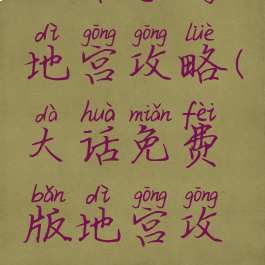 dì gōng gōng lüè
地宫攻略(
dà huà miǎn fèi
大话免费
bǎn dì gōng gōng
版地宫攻